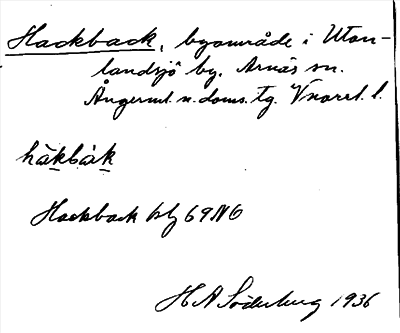 Hackback, byområde i Utan-
landsjö by, Arnäs sn.
Ångerml. n. doms. tg. Vnorrl. l.
håkbåk
Hackback blg 69 NO
H A Söderberg 1936